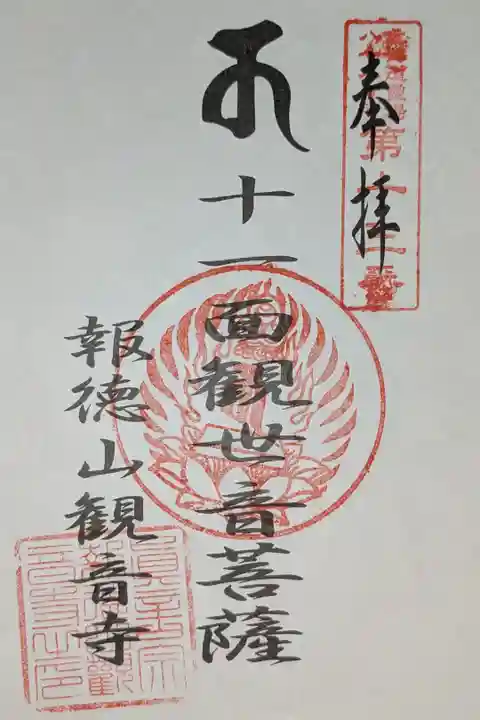 奉拝
第十三番
十一面観世音菩薩
報徳山観音寺